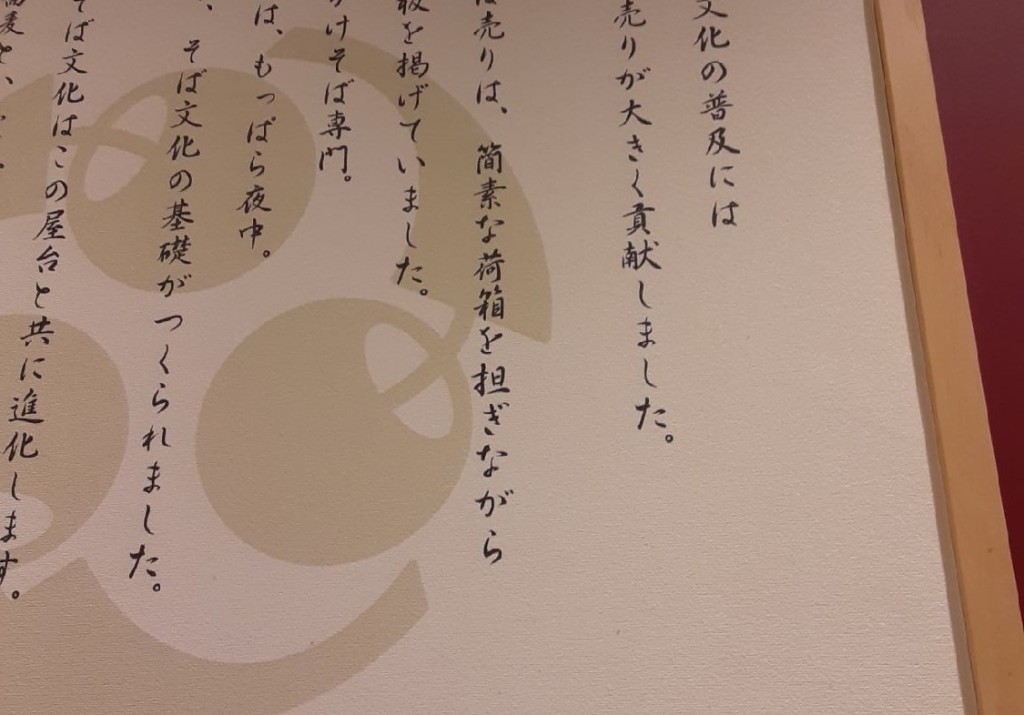 文化の普及には
売りが大きく貢献しました。
売りは、簡素な荷箱を担ぎながら
を掲げていました。
けそば専門。
は、もっぱら夜中。
、そば文化の基礎がつくられました。
そば文化はこの屋台と共に進化します。